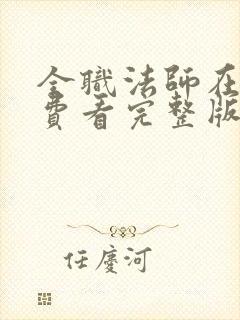 全職法師在
費看完整版
任慶河